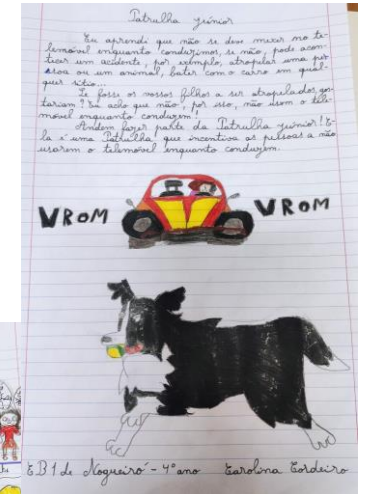 Patrulha júnior
Eu aprendi que não se deve mexer no te-
lemóvel enquanto conduzimos, se não, pode acon-
tecer um acidente, por exemplo, atropelar uma pes
ssoa ou um animal, bater com o carro em qual-
quer sítio...
Se fosse os vossos filhos a ser atropelados, gos-
tariam? Eu acho que não, por isso, não usem o tele-
móvel enquanto conduzem!
Andem fazer parte da Patrulha júnior! E-
la é uma Patrulha, que incentiva as pessoas a não
usarem o telemóvel enquanto conduzem.
VROM VROM
EB1 de Nogueiró - 4º ano Carolina Cordeiro